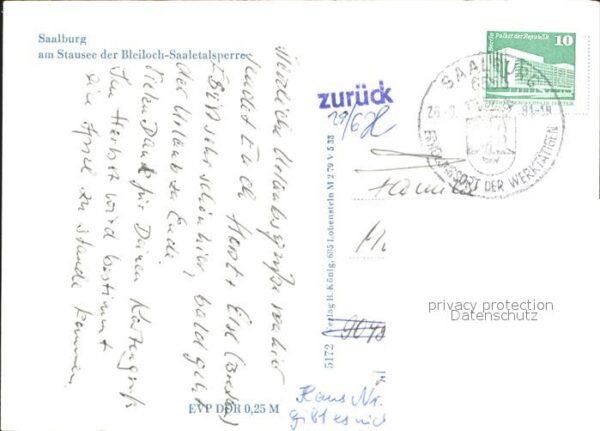 Saalburg
am Stausee der Bleiloch-Saaletalsperre
Herzliche Urlaubsgrüße von hier
sendet Euch Horst + Else
Es ist sehr schön hier, bald geht
der Urlaub zu Ende.
Vielen Dank für Deinen Kartengruß
Im Herbst wird bestimmt
die zu stande kommen.
EVP DDR 0,25 M
5172 Verlag H. König, 685 Lobenstein M 279 V 5 33
zurück
29/6
Palast der Republik
10
SAALBURG
ERHOLUNGSORT DER WERKTÄTIGEN
Familie
privacy protection
Datenschutz
Haus Nr.
gibt es nich